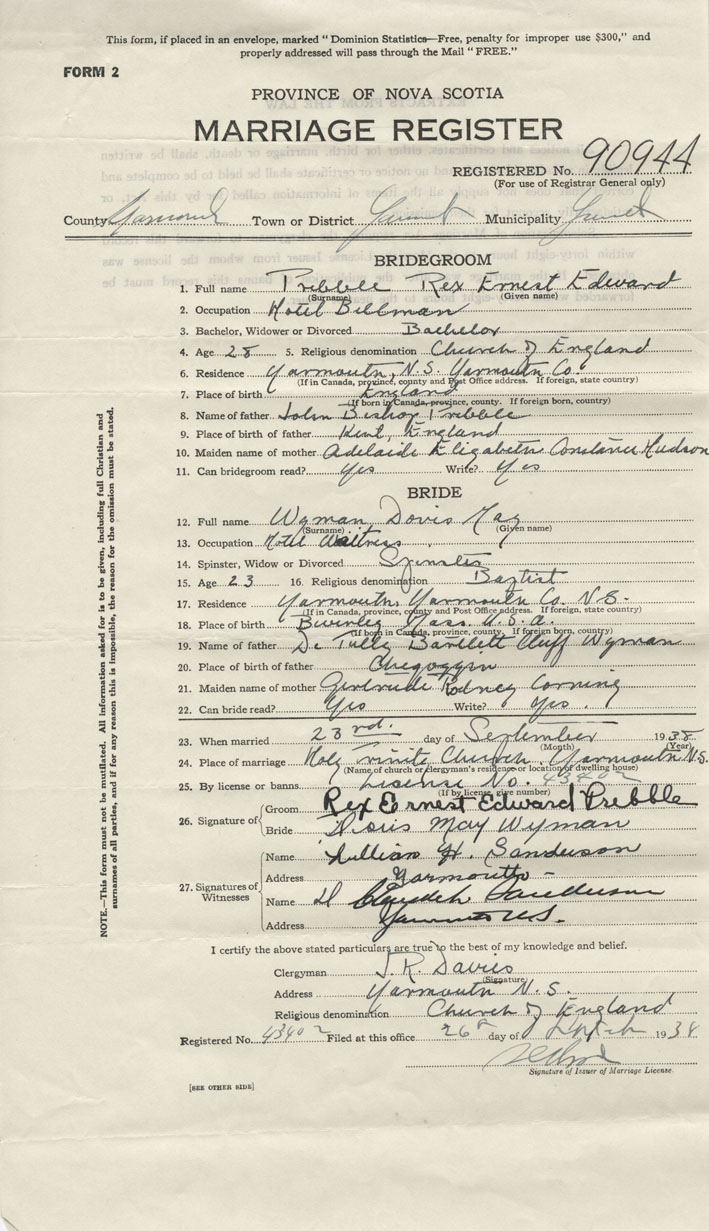 This form, if placed in an envelope, marked "Dominion Statistics—Free, penalty for improper use $300," and
properly addressed will pass through the Mail "FREE."
FORM 2
PROVINCE OF NOVA SCOTIA
MARRIAGE REGISTER
REGISTERED No. 90944
(For use of Registrar General only)
County Yarmouth Town or District Yarmouth Municipality
BRIDEGROOM
1. Full name Pribble Rex Ernest Edward
(Surname) (Given name)
2. Occupation Hotel Bellman
3. Bachelor, Widower or Divorced Bachelor
4. Age 28 5. Religious denomination Church of England
6. Residence Yarmouth, N.S. Yarmouth Co.
(If in Canada, province, county and Post Office address. If foreign, state country)
7. Place of birth England
(If born in Canada, province, county. If foreign born, country)
8. Name of father John Bishop Pribble
9. Place of father Kent, England
10. Maiden name of mother Adelaide Elizabeth Constance Hudson
11. Can bridegroom read? Yes Write? Yes
BRIDE
12. Full name Wyman Doris May
(Surname) (Given name)
13. Occupation Hotel Waitress
14. Spinster, Widow or Divorced Spinster
15. Age 23 16. Religious denomination Baptist
17. Residence Yarmouth, Yarmouth Co. N.S.
(If in Canada, province, county and Post Office address. If foreign, state country)
18. Place of birth Beverley Mass. U.S.A.
(If born in Canada, province, county. If foreign born, country)
19. Name of father Bartlett Wyman
20. Place of birth of father Chegoggin
21. Maiden name of mother Gertrude Rodney Corning
22. Can bride read? Yes Write? Yes.
23. When married 23rd. day of September 1938
(Month) (Year)
24. Place of marriage Holy Trinity Church, Yarmouth N.S.
(Name of church or clergyman's residence or location of dwelling house)
25. By license or banns License No. 43402
(If by license, give number)
26. Signature of
Groom Rex Ernest Edward Pribble
Bride Doris May Wyman
27. Signatures of
Witnesses
Name Lillian H. Sanderson
Address Yarmouth
Name Sanderson
Address Yarmouth N.S.
I certify the above stated particulars are true to the best of my knowledge and belief.
Clergyman J. R. Davies
(Signature)
Address Yarmouth N.S.
Religious denomination Church of England
Registered No. 43402 Filed at this office 26 day of Sept 1938
Signature of Issuer of Marriage License.
[SEE OTHER SIDE]
NOTE.—This form must not be mutilated. All information asked for is to be given, including full Christian and
surnames of all parties, and if for any reason this is impossible, the reason for the omission must be stated.